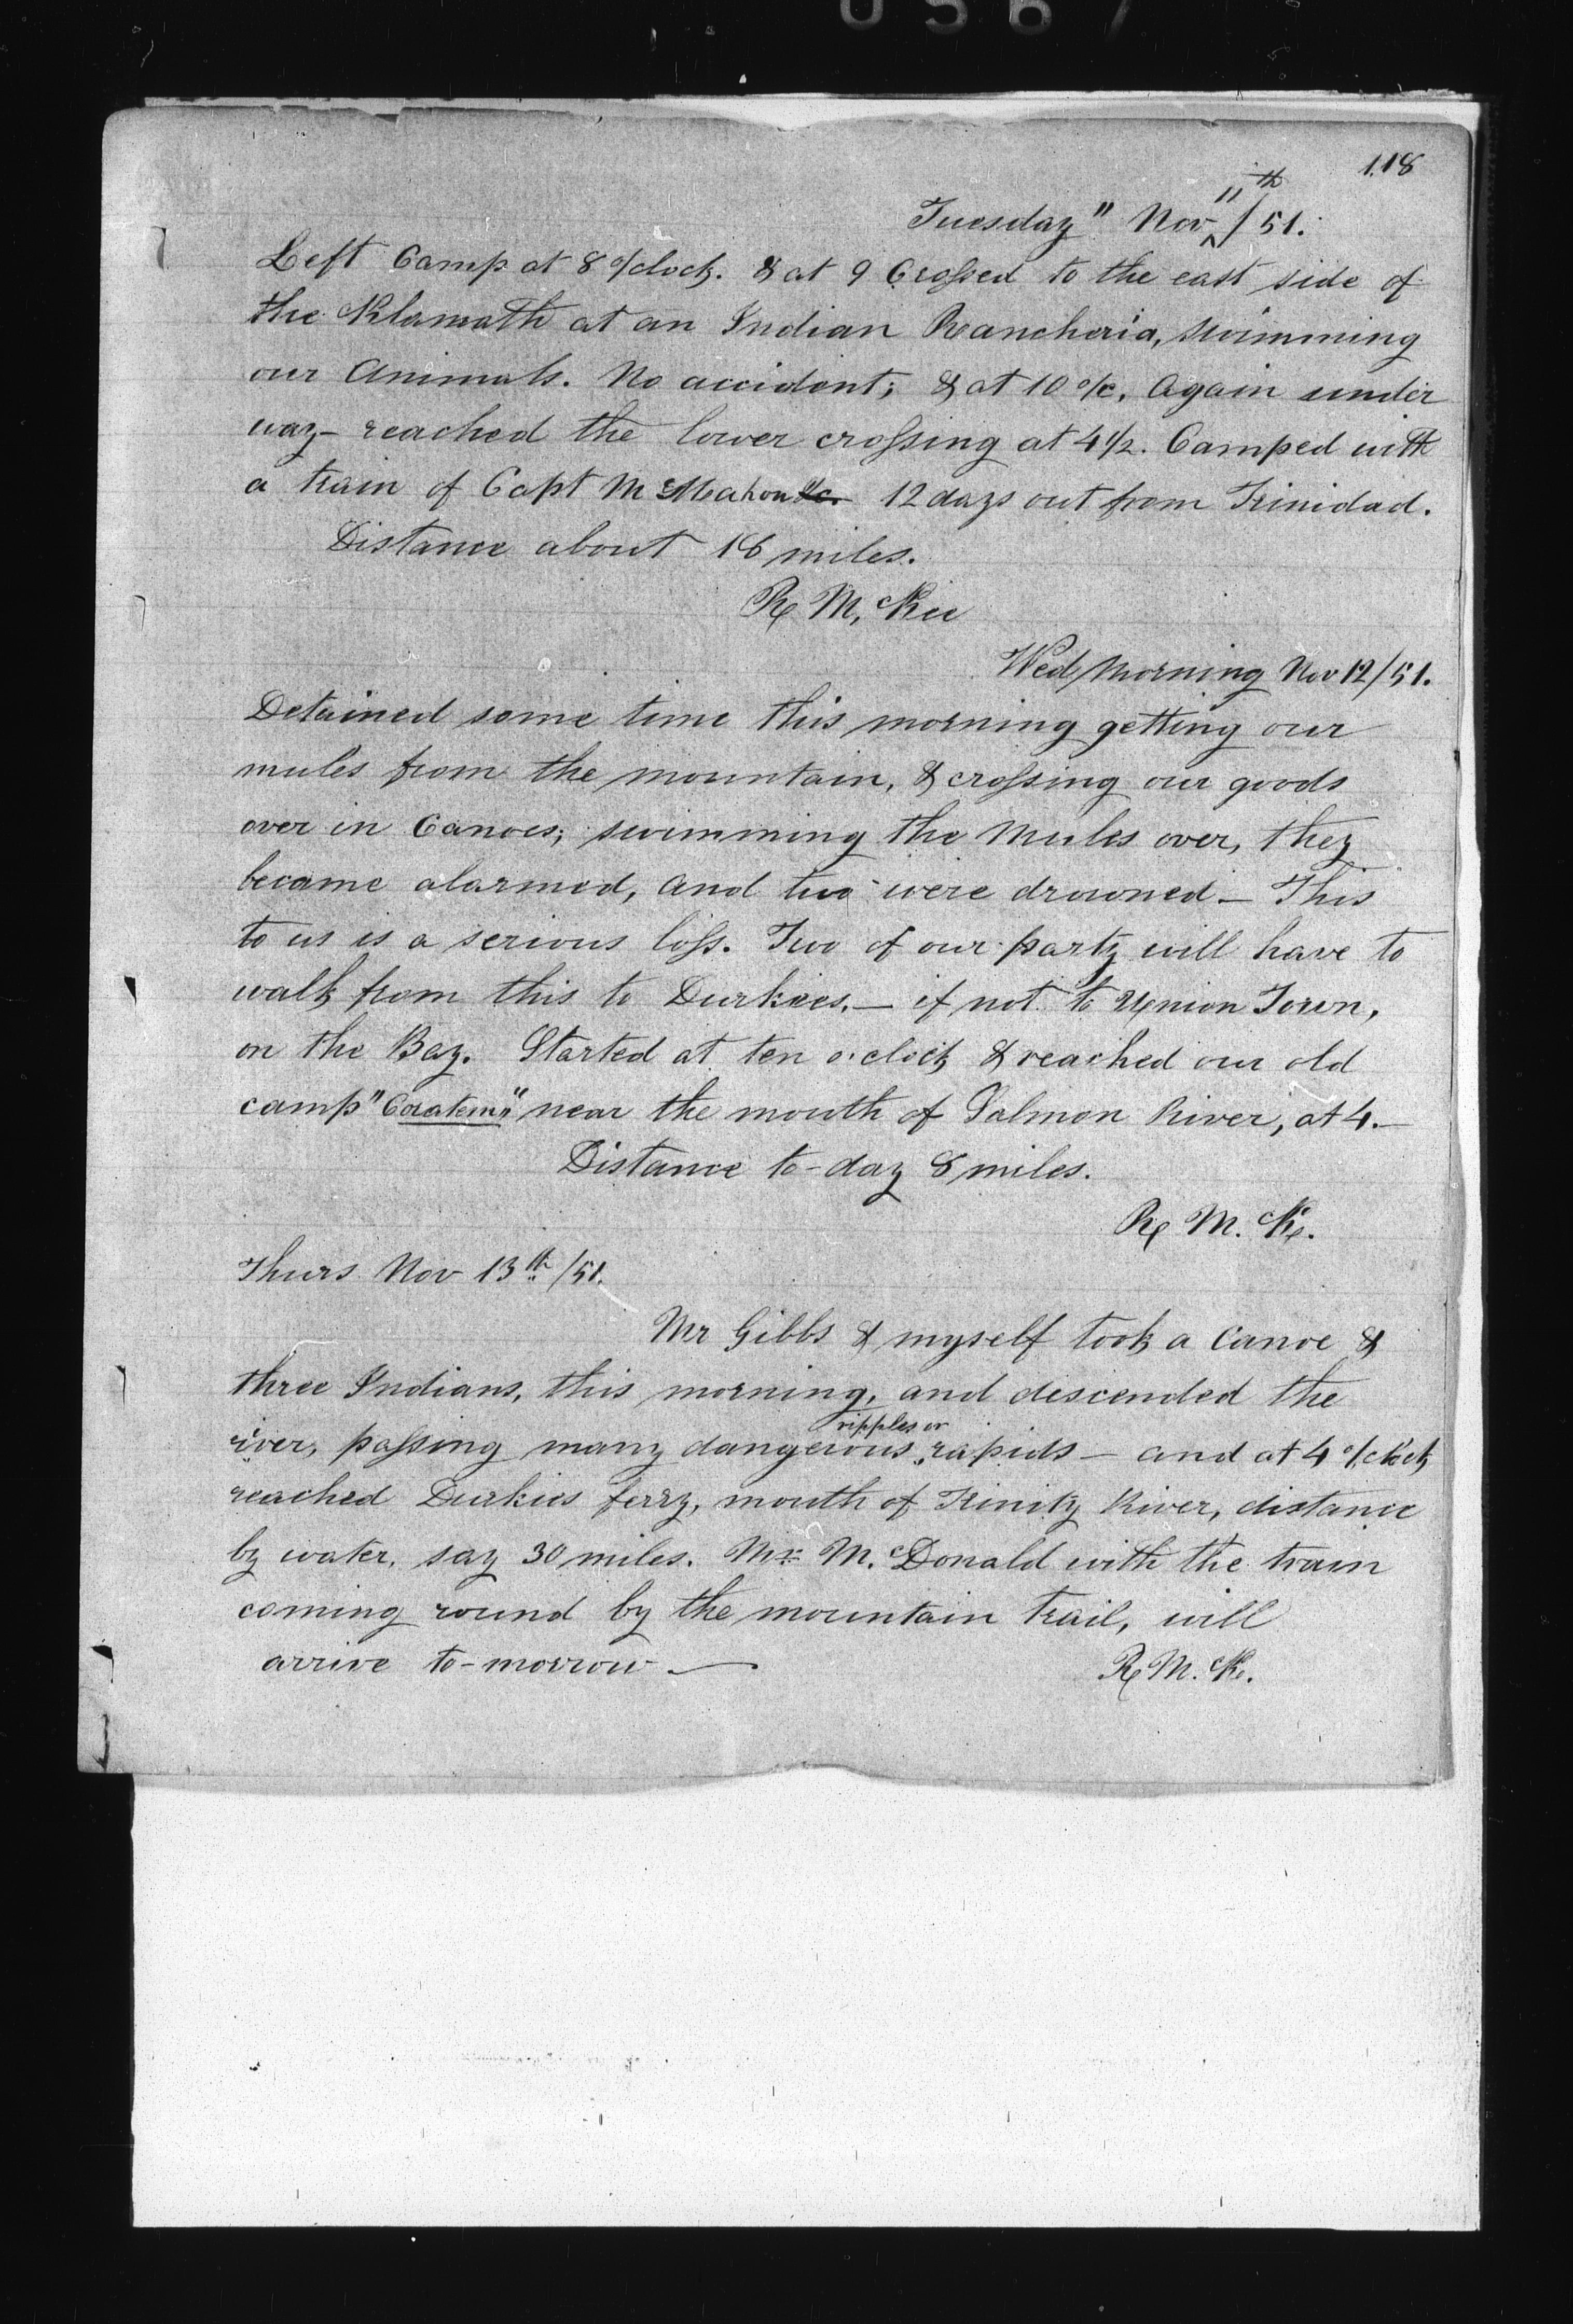 0567
118
Tuesday" Nov 11th / 51.
Left Camp at 8 o/clock. & at 9 Crossed to the east side of
the Klamath at an Indian Rancheria, swimming
our Animals. No accident; & at 10 o/c. Again under
way – reached the lower crossing at 4 1/2. Camped with
a train of Capt McMahon &c. 12 days out from Trinidad.
Distance about 16 miles.
R M, cKee
Wed Morning Nov 12/51.
Detained some time this morning getting our
mules from the mountain, & crossing our goods
over in Canoes; swimming the Mules over, they
became alarmed, and two were drowned – This
to us is a serious loss. Two of our party will have to
walk from this to Durkees. – if not to Union Town,
on the Bay. Started at ten o'clock & reached our old
camp "Coratem" near the mouth of Salmon River, at 4. –
Distance to-day 8 miles.
R M. cK.
Thurs Nov 13th /51.
Mr Gibbs & myself took a Canoe &
three Indians, this morning, and descended the
river, passing many dangerous ripples or rapids – and at 4 o/clock
reached Durkies ferry, mouth of Trinity River, distance
by water, say 30 miles. Mr M.cDonald with the train
coming round by the mountain trail, will
arrive to-morrow —
R M. cK.